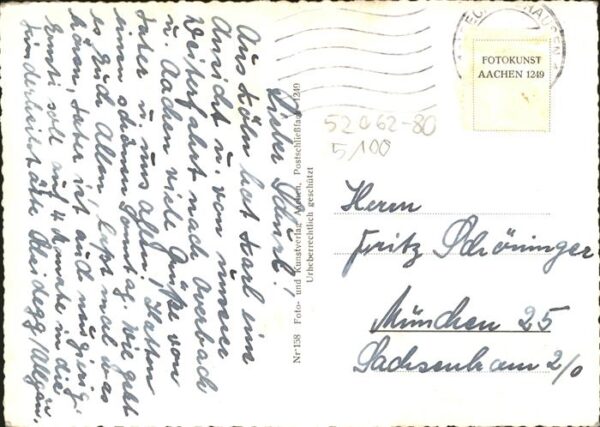 Lieber Schurl!
Aus Köln hast Karl eine
Ansicht u. von unserer
Weiterfahrt nach
u. Aachen viele Grüße von
Vater u. uns allen! Hatten
einen schönen Sonntag. Wie geht
es Euch Allen, laßt mal was
hören, Vater ist auch neugierig.
Ernstl soll auf 4 Monate in die
Kinderheilstätte Scheidegg/Allgäu.
Nr 158 Foto- und Kunstverlag Aachen, Postschließfach 1249
Urheberrechtlich geschützt
FOTOKUNST
AACHEN 1249
520 62-80
5/100
Herrn
Fritz Schöninger
München 25
Sachsenkam 2/0